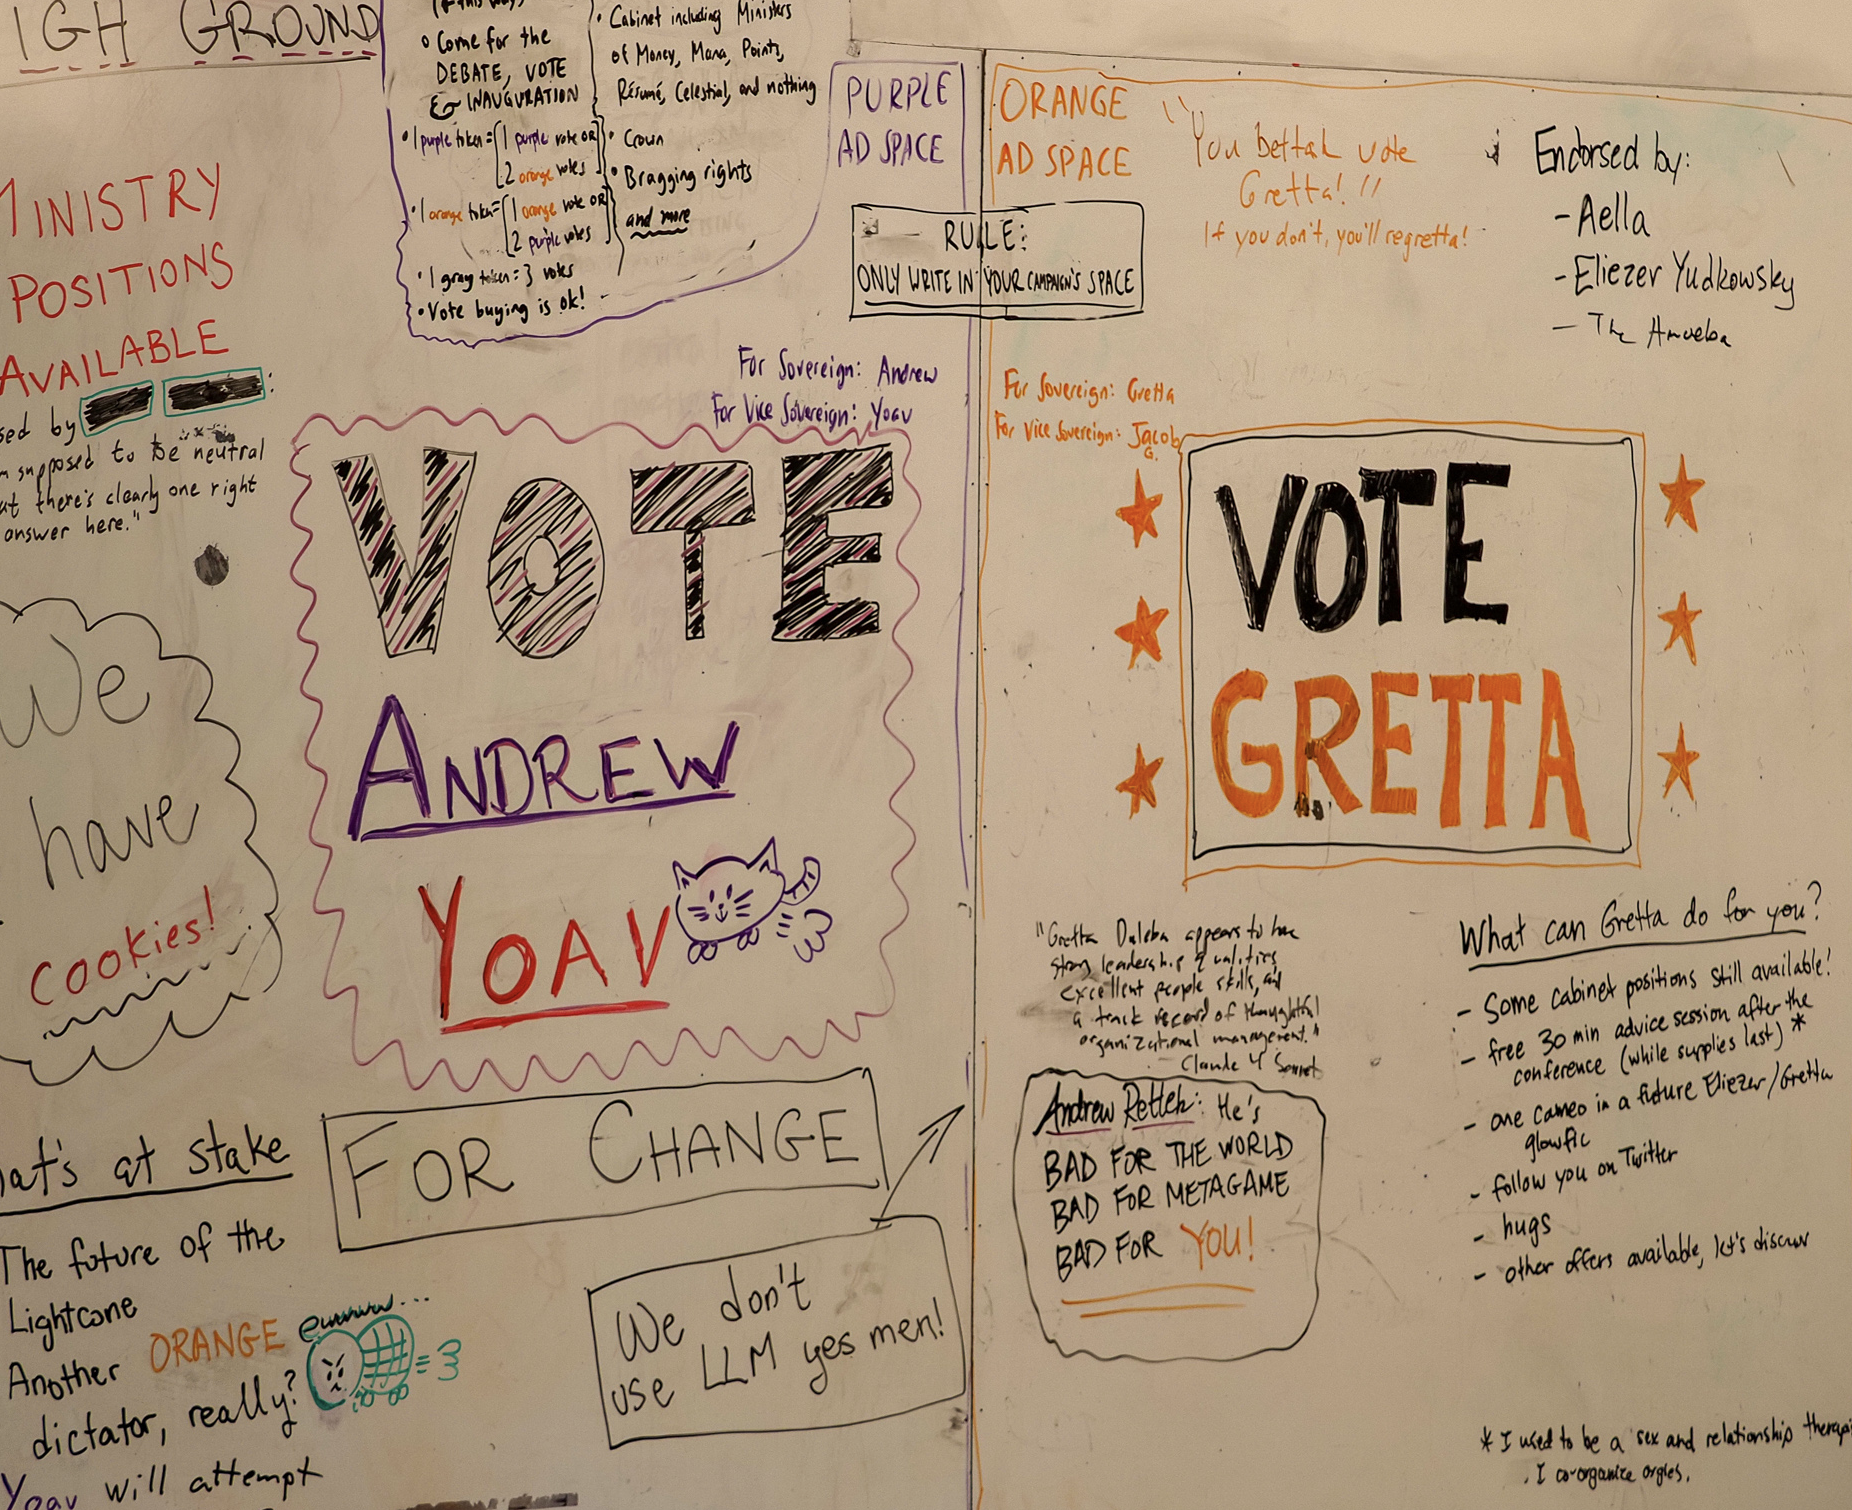 IGH GROUND
MINISTRY
POSITIONS
AVAILABLE
sed by
supposed to be neutral
there's clearly one right
answer here."
We
have
cookies!
at's at stake
The future of the
Lightcone
Another ORANGE
dictator, really?
Yoav will attempt
• Come for the
DEBATE, VOTE
& INAUGURATION
• 1 purple token = 1 purple vote OR
2 orange votes
• 1 orange token = 1 orange vote OR
2 purple votes
• 1 gray token = 3 votes
• Vote buying is ok!
• Cabinet including Ministers
of Money, Mana, Points,
Résumé, Celestial, and nothing
• Crown
• Bragging rights
and more
PURPLE
AD SPACE
RULE:
ONLY WRITE IN YOUR CAMPAIGN'S SPACE
For Sovereign: Andrew
For Vice Sovereign: Yoav
VOTE
ANDREW
YOAV
FOR CHANGE
We don't
use LLM yes men!
ORANGE
AD SPACE
You bettah vote
Gretta!
If you don't, you'll regretta!
Endorsed by:
- Aella
- Eliezer Yudkowsky
- The Amoeba
For Sovereign: Gretta
For Vice Sovereign: Jacob
G.
VOTE
GRETTA
"Gretta Duleba appears to have
strong leadership qualities,
excellent people skills, and
a track record of thoughtful
organizational management."
Claude 4 Sonnet
Andrew Rettek: He's
BAD FOR THE WORLD
BAD FOR METAGAME
BAD FOR YOU!
What can Gretta do for you?
- Some cabinet positions still available!
- free 30 min advice session after the
conference (while supplies last) *
- one cameo in a future Eliezer/Gretta
glowfic
- follow you on Twitter
- hugs
- other offers available, let's discuss
* I used to be a sex and relationship therapi
. I co-organize orgies.